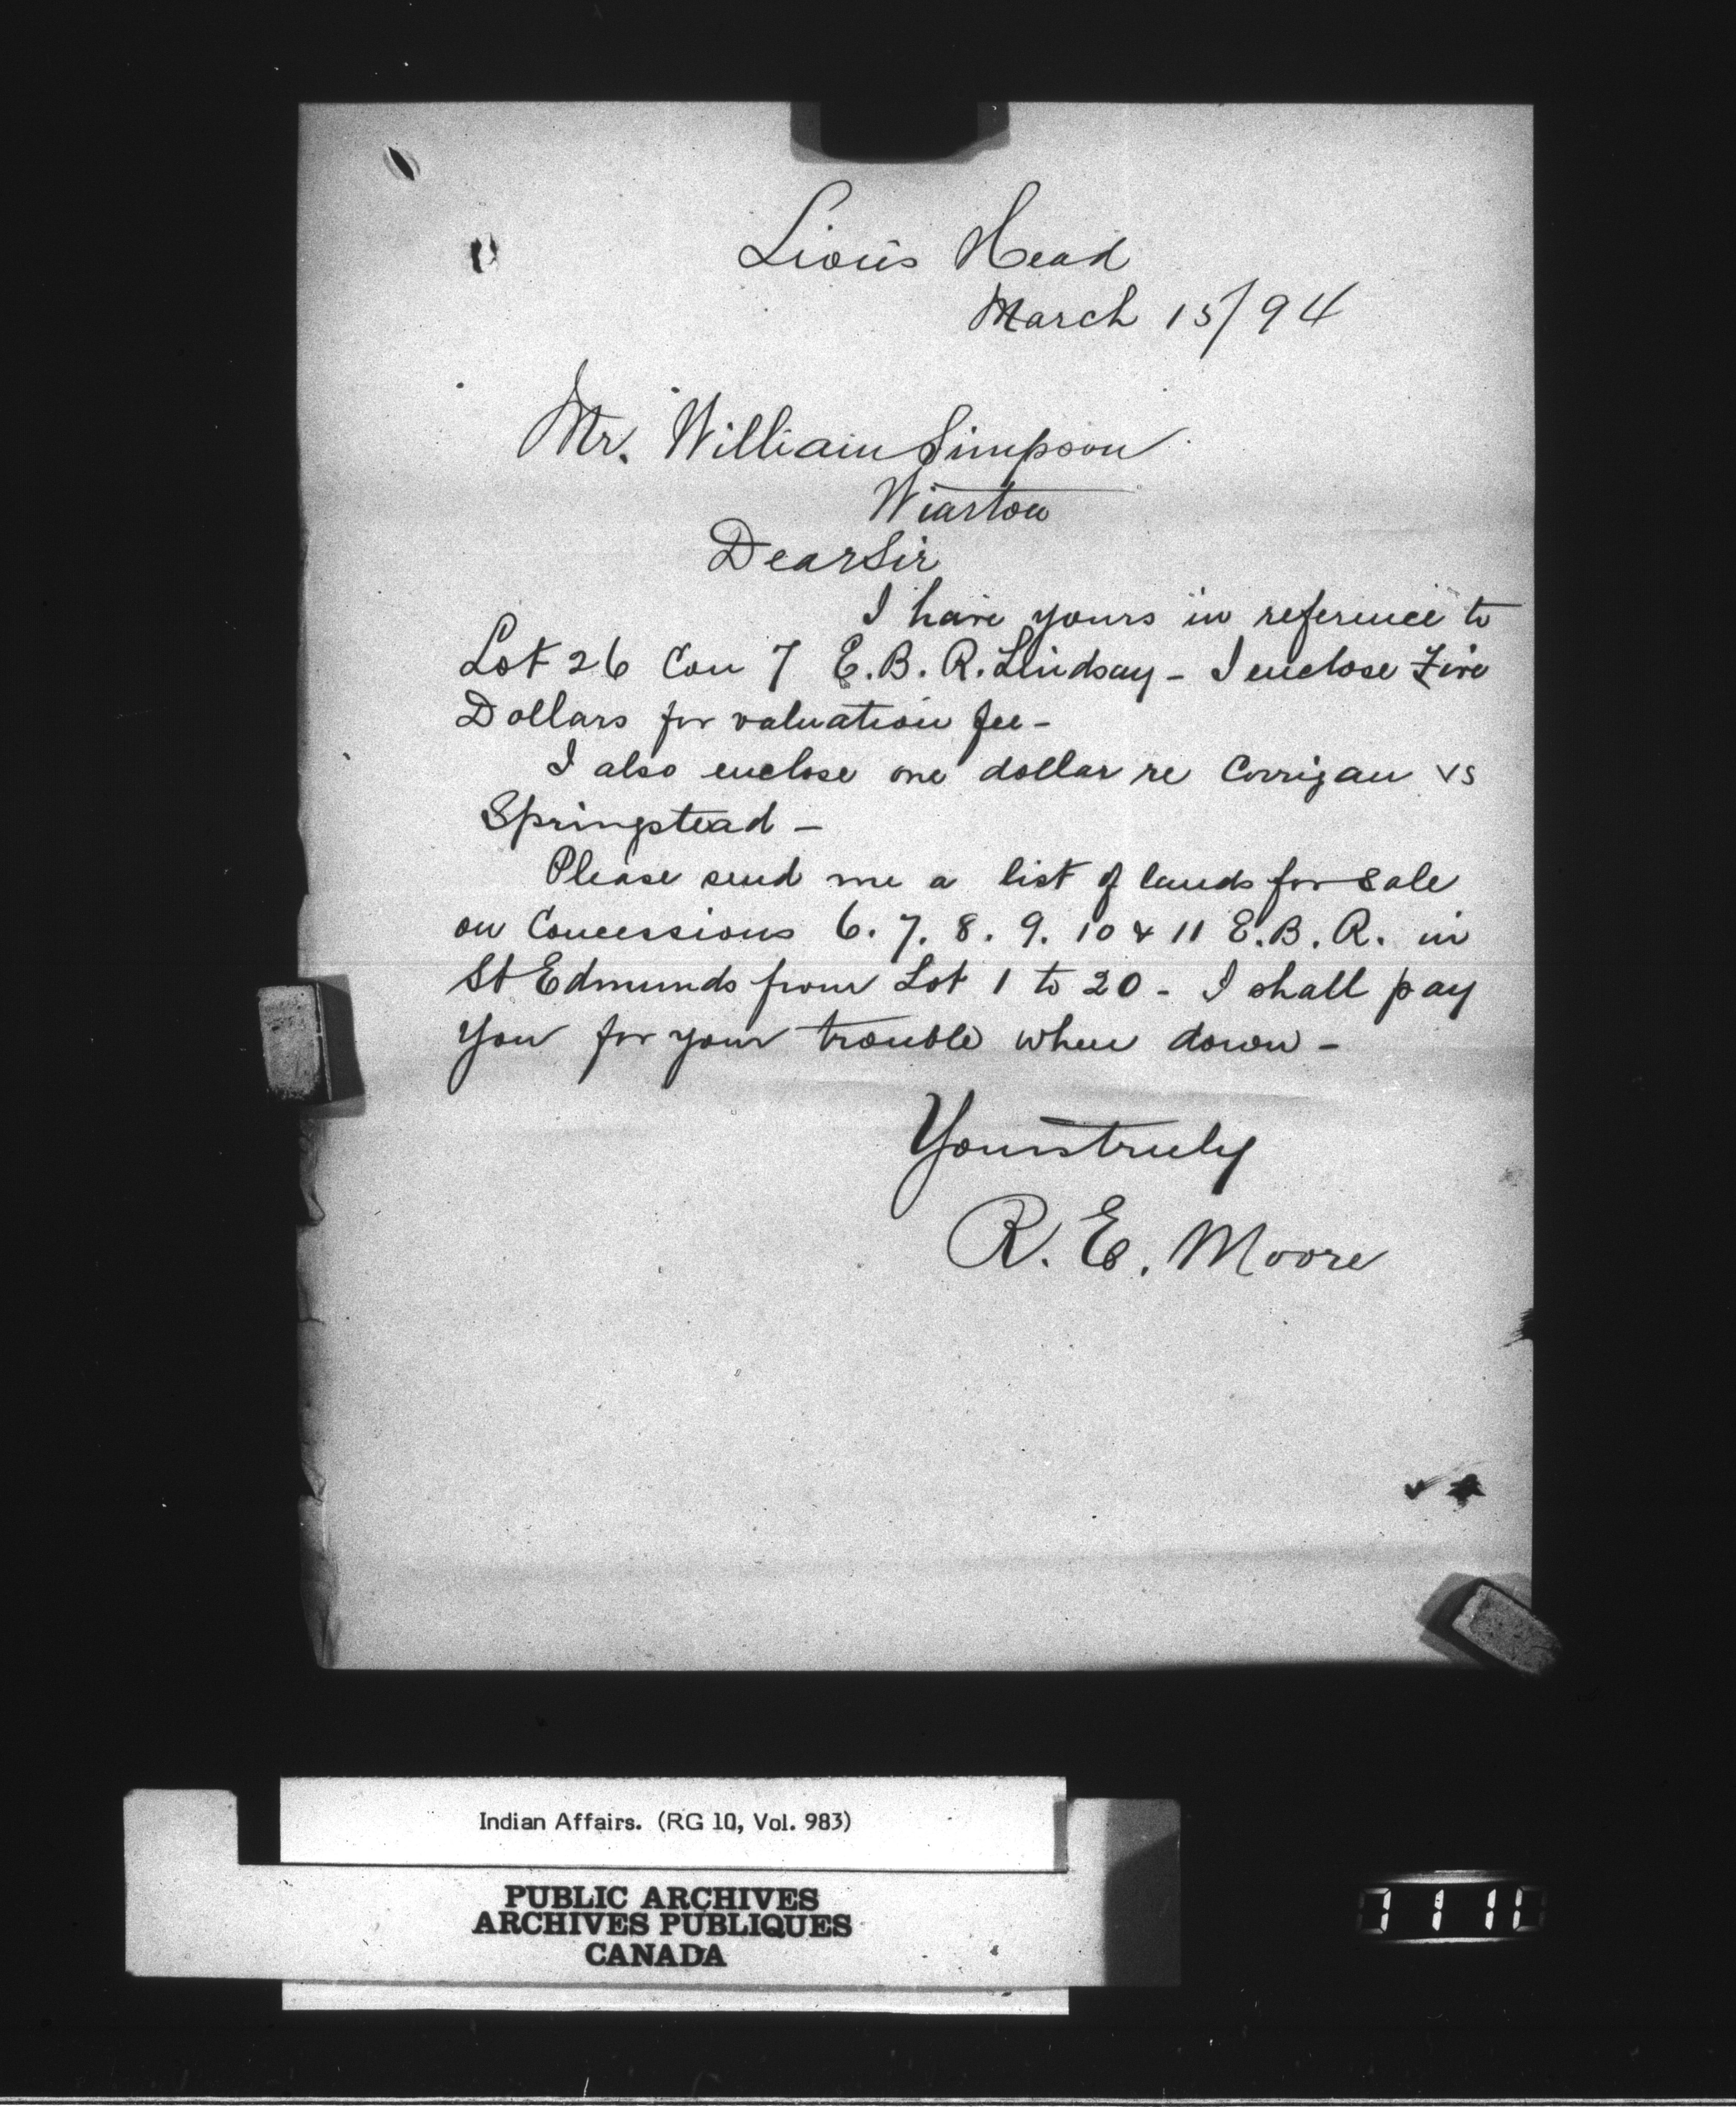 Lion's Head
March 15/94
Mr. William Simpson
Wiarton
Dear Sir
I have yours in reference to
Lot 26 Con 7 E.B.R. Lindsay - I enclose Five
Dollars for valuation fee -
I also enclose one dollar re Corrigan vs
Springstead -
Please send me a list of lands for sale
on Concessions 6. 7. 8. 9. 10 & 11 E.B.R. in
St Edmunds from Lot 1 to 20 - I shall pay
you for your trouble when down -
Yours truly
R. E. Moore
Indian Affairs. (RG 10, Vol. 983)
PUBLIC ARCHIVES
ARCHIVES PUBLIQUES
CANADA